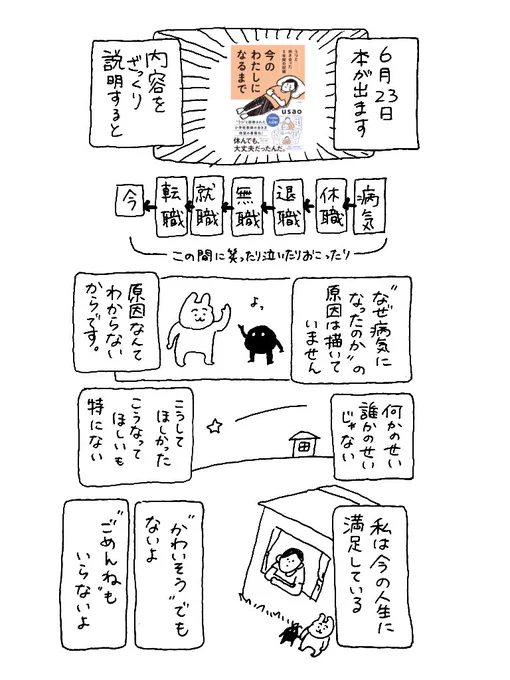 6月23日
本が出ます
今の
わたしに
なるまで
usao
休んでも、
大丈夫だったんだ。
内容を
ざっくり
説明すると
病気
休職
退職
無職
就職
転職
今
この間に笑ったり泣いたりおこったり
“なぜ病気に
なったのか”の
原因は描いて
いません
よっ
原因なんて
わからない
からです。
何かのせい
誰かのせい
じゃない
こうして
ほしかった
こうなって
ほしいも
特にない
私は今の人生に
満足している
“かわいそう”でも
ないよ
“ごめんね”も
いらないよ